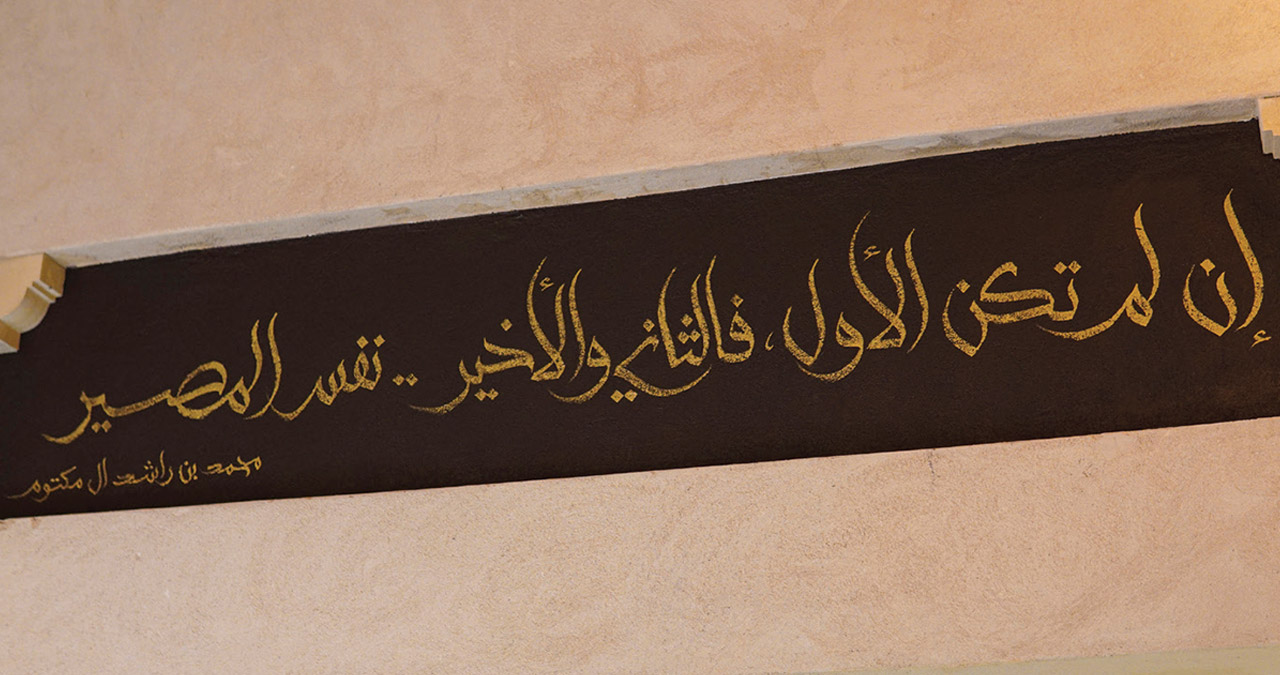 إن لم تكن الأول، فالثاني والأخير .. نفس المصير
محمد بن راشد ال مكتوم